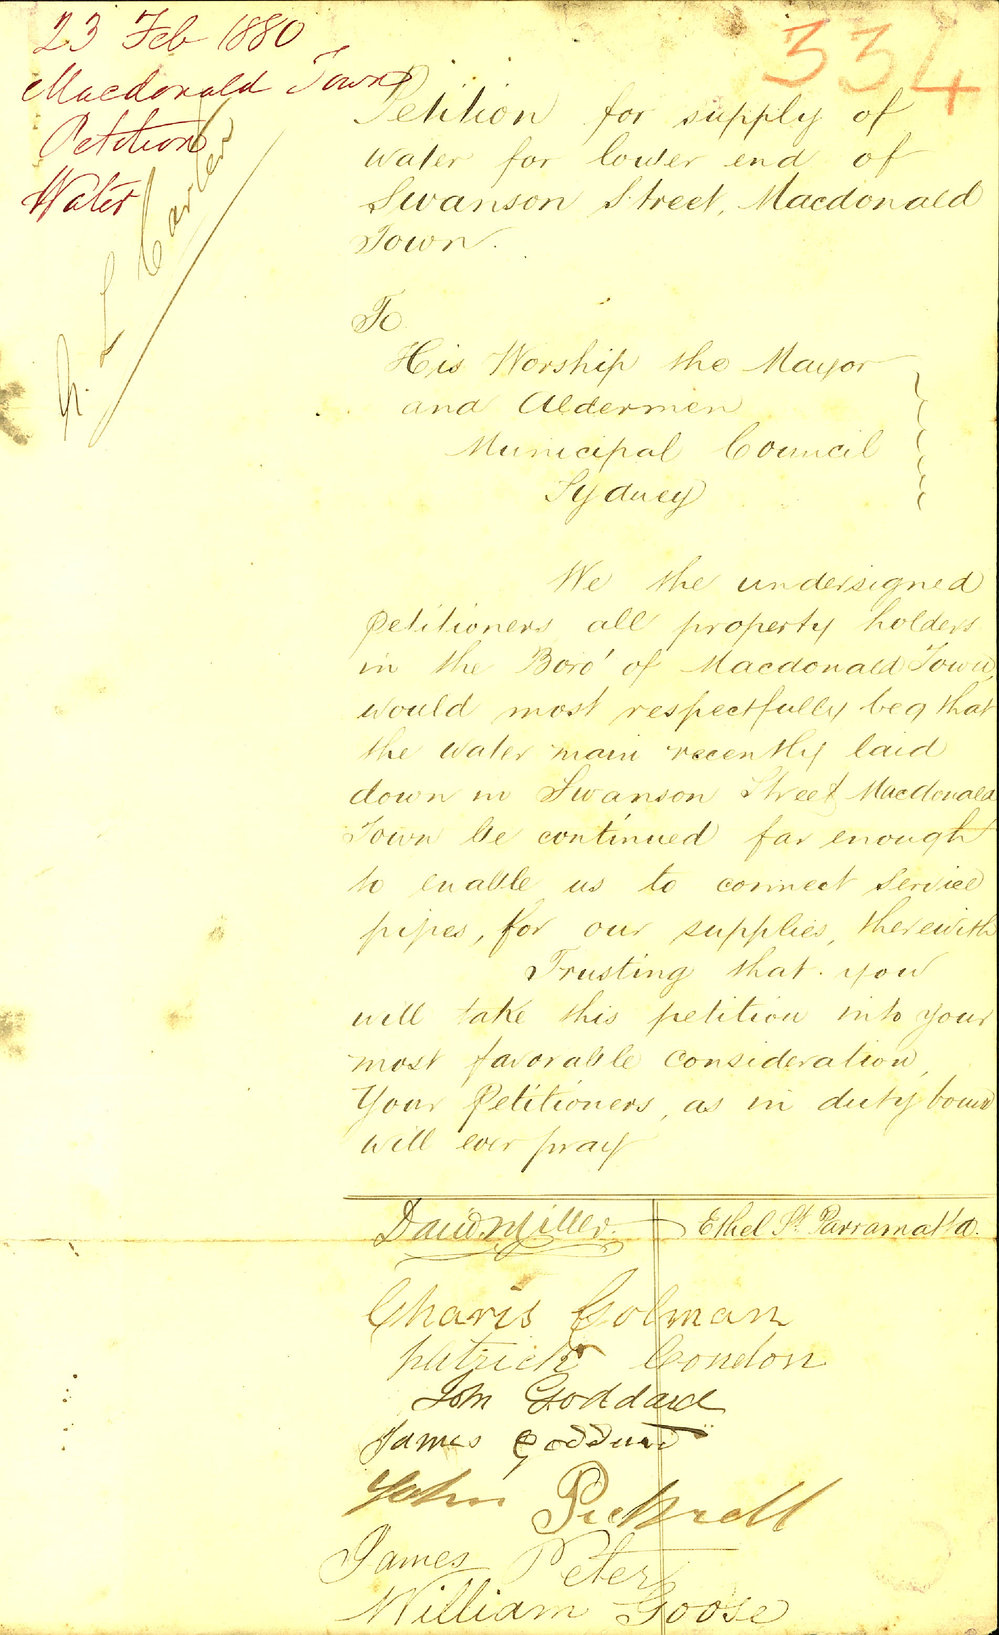 23 Feb 1880
Macdonald Town
Petition
Water
334
Petition for supply of
water for lower end of
Swanson Street, Macdonald
Town.
To
His Worship the Mayor
and Aldermen
Municipal Council
Sydney
We the undersigned
Petitioners all property holders
in the Boro' of Macdonald Town,
would most respectfully beg that
the water main recently laid
down in Swanson Street Macdonald
Town be continued far enough
to enable us to connect service
pipes, for our supplies, therewith
Trusting that you
will take this petition into your
most favorable consideration,
Your Petitioners, as in duty bound
will ever pray
David Miller Ethel St Parramatta
Colman
Patrick Condon
John Goddard
James Goddard
John Picknell
James Peters
William Goose